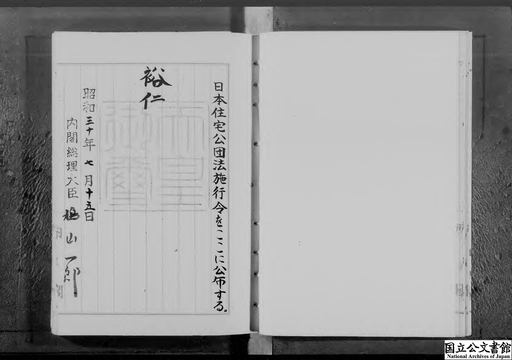 日本住宅公団法施行令をここに公布する。
裕仁
天皇御璽
昭和三十年七月十五日
内閣総理大臣 鳩山一郎
国立公文書館
National Archives of Japan